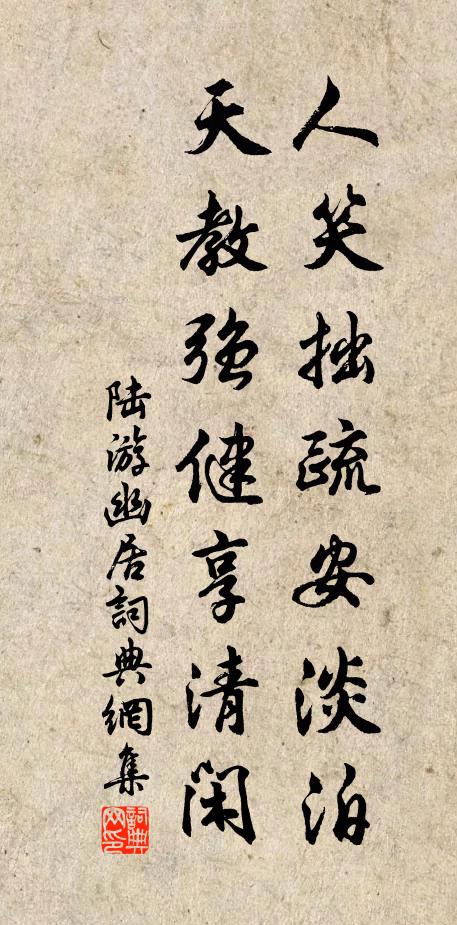 人笑拙疏安淡泊
天教强健享清闲
陆游幽居詞典網集
詞典網印